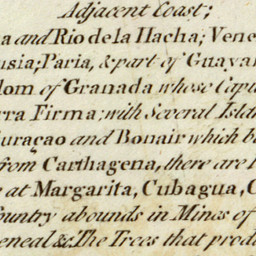 Adjacent Coast;
a and Rio de la Hacha; Vene
usia; Paria, & part of Guayan
dom of Granada whose Capi
rra Firma; with Several Islan
uraçao and Bonair which b
from Carthagena, there are
at Margarita, Cubagua, C
ountry abounds in Mines of
eneal &c. The Trees that prod